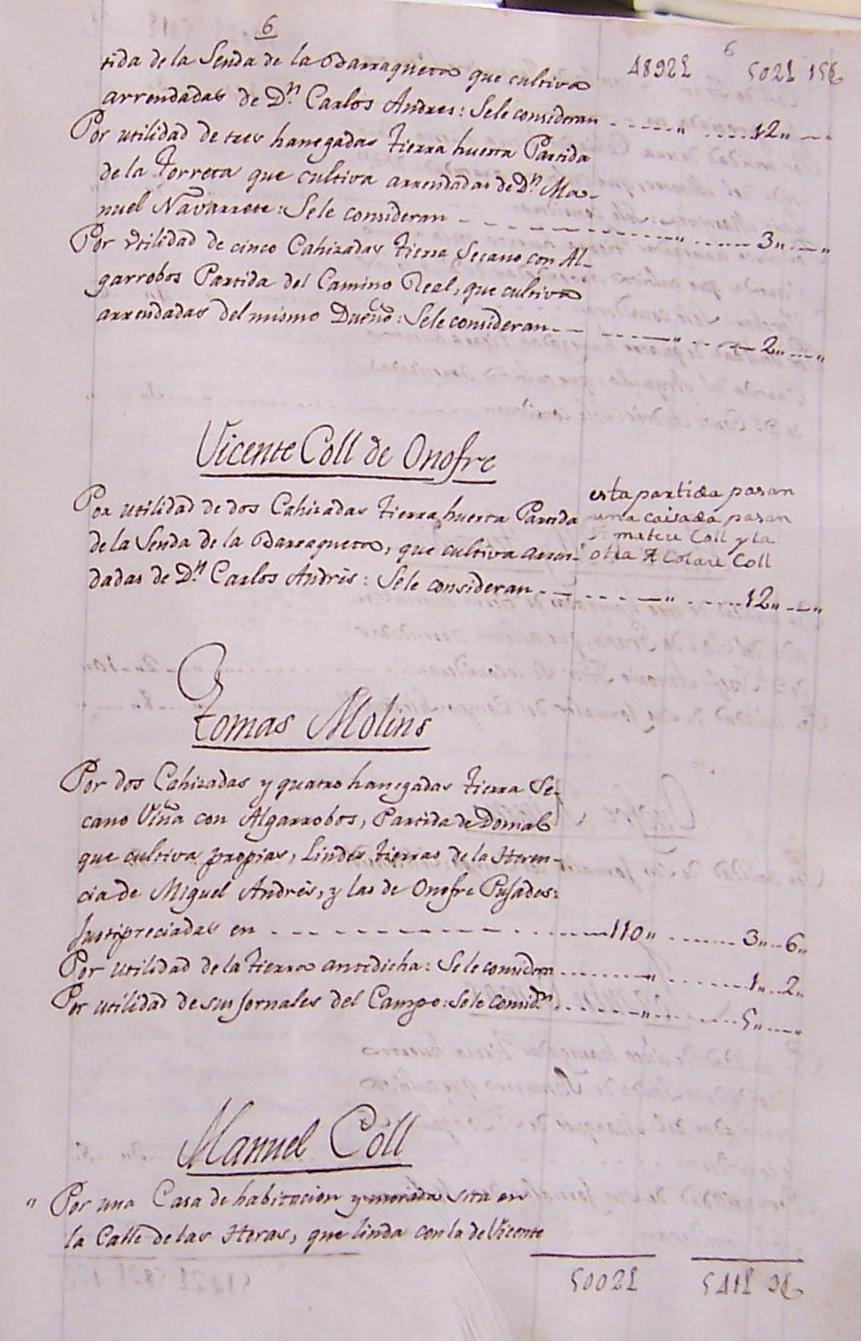 6
4892£ 6 502£ 15§
tida de la Senda de la Barraqueta que cultiva
arrendadas de Dn. Carlos Andres: Sele consideran - - - - - " - - - - 12 " - -
Por utilidad de tres hanegadas tierra huerta Partida
de la Torreta que cultiva arrendadas de Dn. Ma-
nuel Navarrete: Sele consideran - - - - - " - - - - 3 " - - "
Por vtilidad de cinco Cahizadas tierra Secano con Al-
garrobos Partida del Camino Real, que cultiva
arrendadas del mismo Dueño: Sele consideran - - - - - " - - - - 2 " - - "
Vicente Coll de Onofre
Por utilidad de dos Cahizadas tierra huerta Partida
de la Senda de la Barraqueta, que cultiva arren-
dadas de Dn. Carlos Andrès: Sele consideran - - - - - " - - - - 12 " - - "
esta partida pasan
una caisada pasan
mateu Coll y la
otra Colau Coll
Tomas Molins
Por dos Cahizadas y quatro hanegadas tierra Se-
cano Viña con Algarrobos, Partida de Domal
que cultiva propias, Lindes tierras de la Heren-
cia de Miguel Andrès, y las de Onofre Pusades:
Justipreciadas en - - - - - 110 " - - - - 3 " 6 "
Por utilidad de la tierra antedicha: Sele consideran - - - - " - - - - 1 " 2 "
Por utilidad de sus Jornales del Campo: Sele considn. - - - - " - - - - 5 " - -
Manuel Coll
" Por una Casa de habitacion y morada sita en
la Calle de las Heras, que linda con la de Vicente
5002£ 541£ 3§